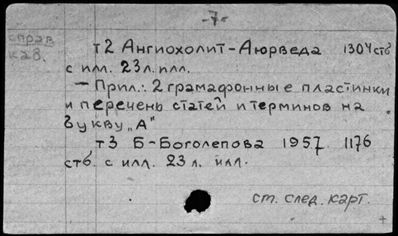 -7-
справ
каб.
т2 Ангиохолит-Аюрведа 1304 стб
с илл. 23 л. илл.
— Прил.: 2 грамафонные пластинки
и перечень статей и терминов на
букву „А"
т3 Б-Боголепова 1957. 1176
стб. с илл. 23 л. илл.
ст. след. карт.
+